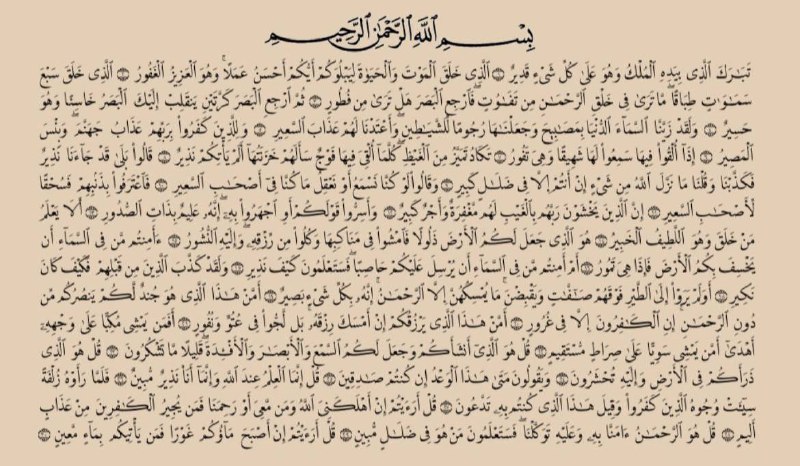 بِسْمِ ٱللَّهِ ٱلرَّحْمَٰنِ ٱلرَّحِيمِ
تَبَارَكَ ٱلَّذِى بِيَدِهِ ٱلْمُلْكُ وَهُوَ عَلَىٰ كُلِّ شَىْءٍ قَدِيرٌ ۝ ٱلَّذِى خَلَقَ ٱلْمَوْتَ وَٱلْحَيَوٰةَ لِيَبْلُوَكُمْ أَيُّكُمْ أَحْسَنُ عَمَلًا ۚ وَهُوَ ٱلْعَزِيزُ ٱلْغَفُورُ ۝ ٱلَّذِى خَلَقَ سَبْعَ
سَمَٰوَٰتٍ طِبَاقًا ۖ مَّا تَرَىٰ فِى خَلْقِ ٱلرَّحْمَٰنِ مِن تَفَٰوُتٍ ۖ فَٱرْجِعِ ٱلْبَصَرَ هَلْ تَرَىٰ مِن فُطُورٍ ۝ ثُمَّ ٱرْجِعِ ٱلْبَصَرَ كَرَّتَيْنِ يَنقَلِبْ إِلَيْكَ ٱلْبَصَرُ خَاسِئًا وَهُوَ
حَسِيرٌ ۝ وَلَقَدْ زَيَّنَّا ٱلسَّمَآءَ ٱلدُّنْيَا بِمَصَٰبِيحَ وَجَعَلْنَٰهَا رُجُومًا لِّلشَّيَٰطِينِ ۖ وَأَعْتَدْنَا لَهُمْ عَذَابَ ٱلسَّعِيرِ ۝ وَلِلَّذِينَ كَفَرُوا۟ بِرَبِّهِمْ عَذَابُ جَهَنَّمَ ۖ وَبِئْسَ
ٱلْمَصِيرُ ۝ إِذَآ أُلْقُوا۟ فِيهَا سَمِعُوا۟ لَهَا شَهِيقًا وَهِىَ تَفُورُ ۝ تَكَادُ تَمَيَّزُ مِنَ ٱلْغَيْظِ ۖ كُلَّمَآ أُلْقِىَ فِيهَا فَوْجٌ سَأَلَهُمْ خَزَنَتُهَآ أَلَمْ يَأْتِكُمْ نَذِيرٌ ۝ قَالُوا۟ بَلَىٰ قَدْ جَآءَنَا نَذِيرٌ
فَكَذَّبْنَا وَقُلْنَا مَا نَزَّلَ ٱللَّهُ مِن شَىْءٍ إِنْ أَنتُمْ إِلَّا فِى ضَلَٰلٍ كَبِيرٍ ۝ وَقَالُوا۟ لَوْ كُنَّا نَسْمَعُ أَوْ نَعْقِلُ مَا كُنَّا فِىٓ أَصْحَٰبِ ٱلسَّعِيرِ ۝ فَٱعْتَرَفُوا۟ بِذَنۢبِهِمْ فَسُحْقًا
لِّأَصْحَٰبِ ٱلسَّعِيرِ ۝ إِنَّ ٱلَّذِينَ يَخْشَوْنَ رَبَّهُم بِٱلْغَيْبِ لَهُم مَّغْفِرَةٌ وَأَجْرٌ كَبِيرٌ ۝ وَأَسِرُّوا۟ قَوْلَكُمْ أَوِ ٱجْهَرُوا۟ بِهِۦٓ ۖ إِنَّهُۥ عَلِيمٌۢ بِذَاتِ ٱلصُّدُورِ ۝ أَلَا يَعْلَمُ
مَنْ خَلَقَ وَهُوَ ٱللَّطِيفُ ٱلْخَبِيرُ ۝ هُوَ ٱلَّذِى جَعَلَ لَكُمُ ٱلْأَرْضَ ذَلُولًا فَٱمْشُوا۟ فِى مَنَاكِبِهَا وَكُلُوا۟ مِن رِّزْقِهِۦ ۖ وَإِلَيْهِ ٱلنُّشُورُ ۝ ءَأَمِنتُم مَّن فِى ٱلسَّمَآءِ أَن
يَخْسِفَ بِكُمُ ٱلْأَرْضَ فَإِذَا هِىَ تَمُورُ ۝ أَمْ أَمِنتُم مَّن فِى ٱلسَّمَآءِ أَن يُرْسِلَ عَلَيْكُمْ حَاصِبًا ۖ فَسَتَعْلَمُونَ كَيْفَ نَذِيرِ ۝ وَلَقَدْ كَذَّبَ ٱلَّذِينَ مِن قَبْلِهِمْ فَكَيْفَ كَانَ
نَكِيرِ ۝ أَوَلَمْ يَرَوْا۟ إِلَى ٱلطَّيْرِ فَوْقَهُمْ صَٰٓفَّٰتٍ وَيَقْبِضْنَ ۚ مَا يُمْسِكُهُنَّ إِلَّا ٱلرَّحْمَٰنُ ۚ إِنَّهُۥ بِكُلِّ شَىْءٍۭ بَصِيرٌ ۝ أَمَّنْ هَٰذَا ٱلَّذِى هُوَ جُندٌ لَّكُمْ يَنصُرُكُم مِّن
دُونِ ٱلرَّحْمَٰنِ ۚ إِنِ ٱلْكَٰفِرُونَ إِلَّا فِى غُرُورٍ ۝ أَمَّنْ هَٰذَا ٱلَّذِى يَرْزُقُكُمْ إِنْ أَمْسَكَ رِزْقَهُۥ ۚ بَل لَّجُّوا۟ فِى عُتُوٍّ وَنُفُورٍ ۝ أَفَمَن يَمْشِى مُكِبًّا عَلَىٰ وَجْهِهِۦٓ
أَهْدَىٰٓ أَمَّن يَمْشِى سَوِيًّا عَلَىٰ صِرَٰطٍ مُّسْتَقِيمٍ ۝ قُلْ هُوَ ٱلَّذِىٓ أَنشَأَكُمْ وَجَعَلَ لَكُمُ ٱلسَّمْعَ وَٱلْأَبْصَٰرَ وَٱلْأَفْـِٔدَةَ ۖ قَلِيلًا مَّا تَشْكُرُونَ ۝ قُلْ هُوَ ٱلَّذِى
ذَرَأَكُمْ فِى ٱلْأَرْضِ وَإِلَيْهِ تُحْشَرُونَ ۝ وَيَقُولُونَ مَتَىٰ هَٰذَا ٱلْوَعْدُ إِن كُنتُمْ صَٰدِقِينَ ۝ قُلْ إِنَّمَا ٱلْعِلْمُ عِندَ ٱللَّهِ وَإِنَّمَآ أَنَا۠ نَذِيرٌ مُّبِينٌ ۝ فَلَمَّا رَأَوْهُ زُلْفَةً
سِيٓـَٔتْ وُجُوهُ ٱلَّذِينَ كَفَرُوا۟ وَقِيلَ هَٰذَا ٱلَّذِى كُنتُم بِهِۦ تَدَّعُونَ ۝ قُلْ أَرَءَيْتُمْ إِنْ أَهْلَكَنِىَ ٱللَّهُ وَمَن مَّعِىَ أَوْ رَحِمَنَا فَمَن يُجِيرُ ٱلْكَٰفِرِينَ مِنْ عَذَابٍ
أَلِيمٍ ۝ قُلْ هُوَ ٱلرَّحْمَٰنُ ءَامَنَّا بِهِۦ وَعَلَيْهِ تَوَكَّلْنَا ۖ فَسَتَعْلَمُونَ مَنْ هُوَ فِى ضَلَٰلٍ مُّبِينٍ ۝ قُلْ أَرَءَيْتُمْ إِنْ أَصْبَحَ مَآؤُكُمْ غَوْرًا فَمَن يَأْتِيكُم بِمَآءٍ مَّعِينٍۭ ۝